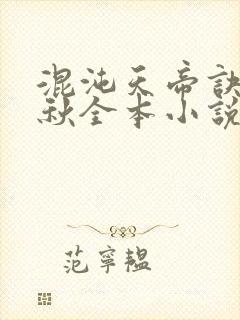 混沌天帝訣
秋全本小說
范寧韞